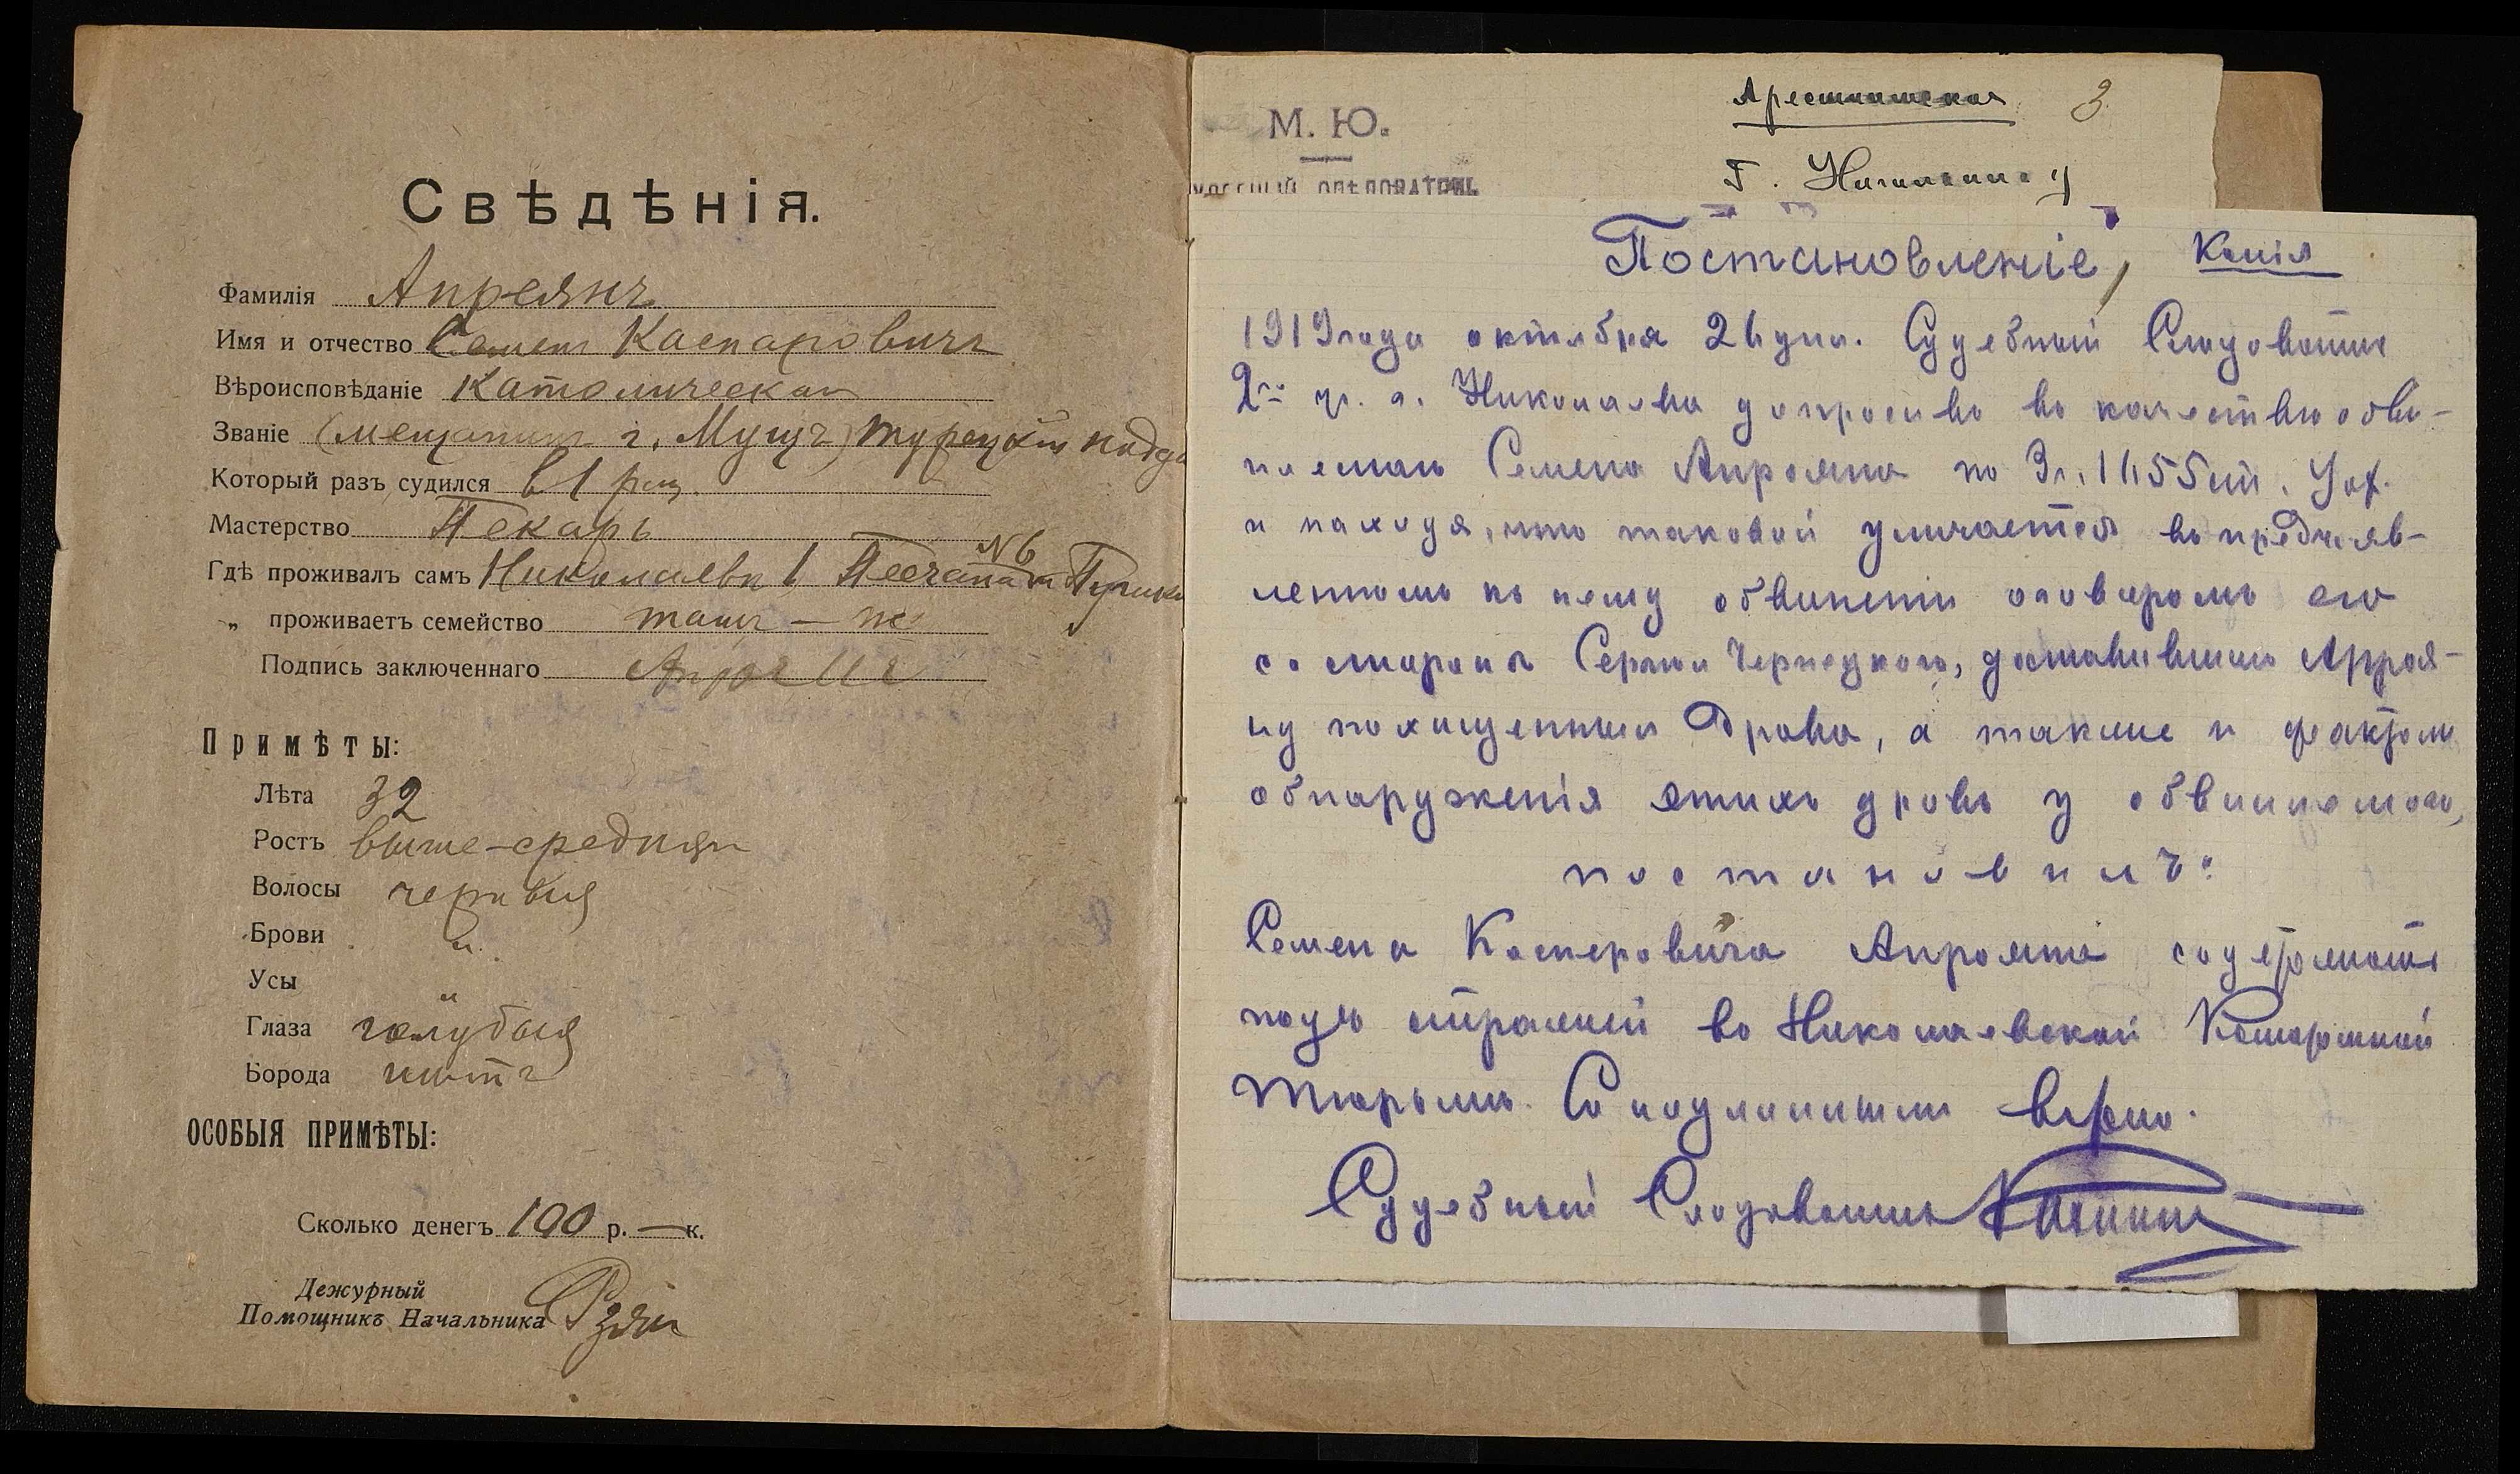 Свѣдѣнія.
Фамилія Апреянъ
Имя и отчество Семенъ Каспаровичъ
Вѣроисповѣданіе католическаго
Званіе (мещанинъ г. Мушъ) турецкій подда
Который разъ судился в 1 разъ
Мастерство Пекарь
№ 6
Гдѣ проживалъ самъ Николаевъ 1 Песчаная
„ проживаетъ семейство тамъ – же
Подпись заключеннаго
Примѣты:
Лѣта 32
Ростъ выше-средняго
Волосы черныя
Брови "
Усы "
Глаза голубыя
Борода нѣтъ
ОСОБЫЯ ПРИМѢТЫ:
Сколько денегъ 100 р. — к.
Дежурный
Помощникъ Начальника
М. Ю.
СЛѢДОВАТЕЛЬ
Арестантская 3
Г. Начальнику
Постановленіе, Копія
1919 года октября 26 дня. Судебный Следователь
2го уч. г. Николаева допросивъ въ качествѣ обви-
няемаго Семена Апрояна по 3 ч. 1655 ст. Улож.
и находя, что таковой уличается въ предъяв-
ленномъ къ нему обвиненіи оговоромъ его
со стороны Сергѣя Чернецкаго, доставившаго Апроя-
ну похищенныя дрова, а также и фактомъ
обнаруженія этихъ дровъ у обвиняемаго,
постановилъ:
Семена Касперовича Апрояна содержать
подъ стражей въ Николаевской Каторжной
Тюрьмѣ. Съ подлиннымъ вѣрно.
Судебный Слѣдователь